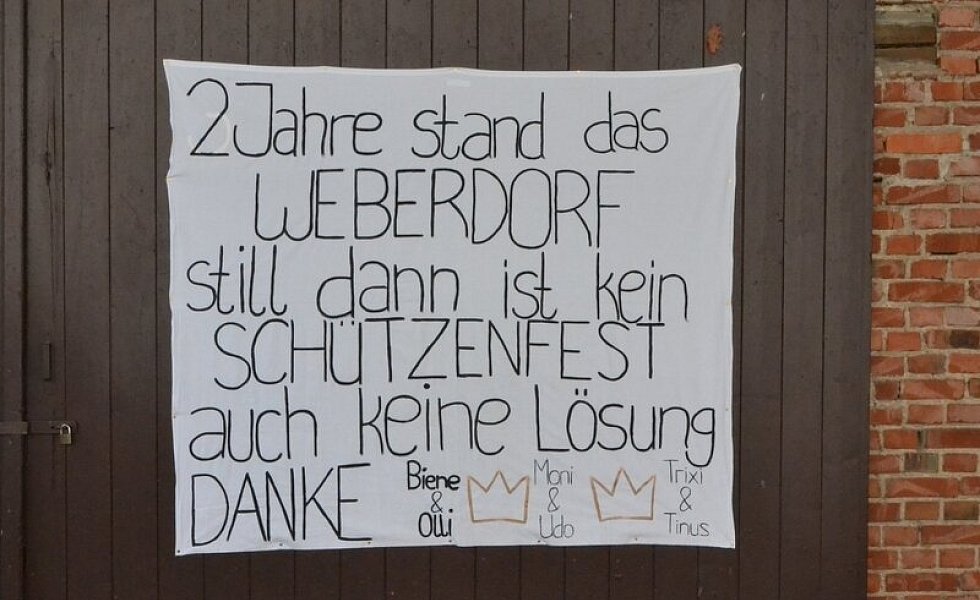 2 Jahre stand das
WEBERDORF
still dann ist kein
SCHÜTZENFEST
auch keine Lösung
DANKE
Biene
&
Olli
Moni
&
Udo
Trixi
&
Tinus